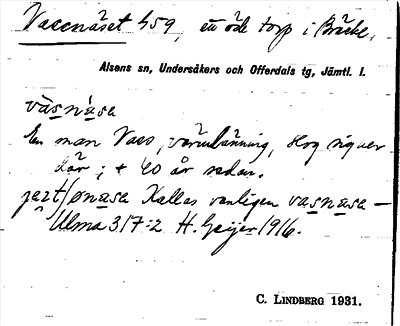 Vassnäset 459, ett öde torp i Bräcke,
Alsens sn, Undersåkers och Offerdals tg, Jämtl. l.
vàsnàsa
En man Vass, värmlänning, slog sig ner
där; + 40 år sedan.
Kallas vanligen vasnasa —
Ulma 317:2 H. Geijer 1916.
C. LINDBERG 1931.